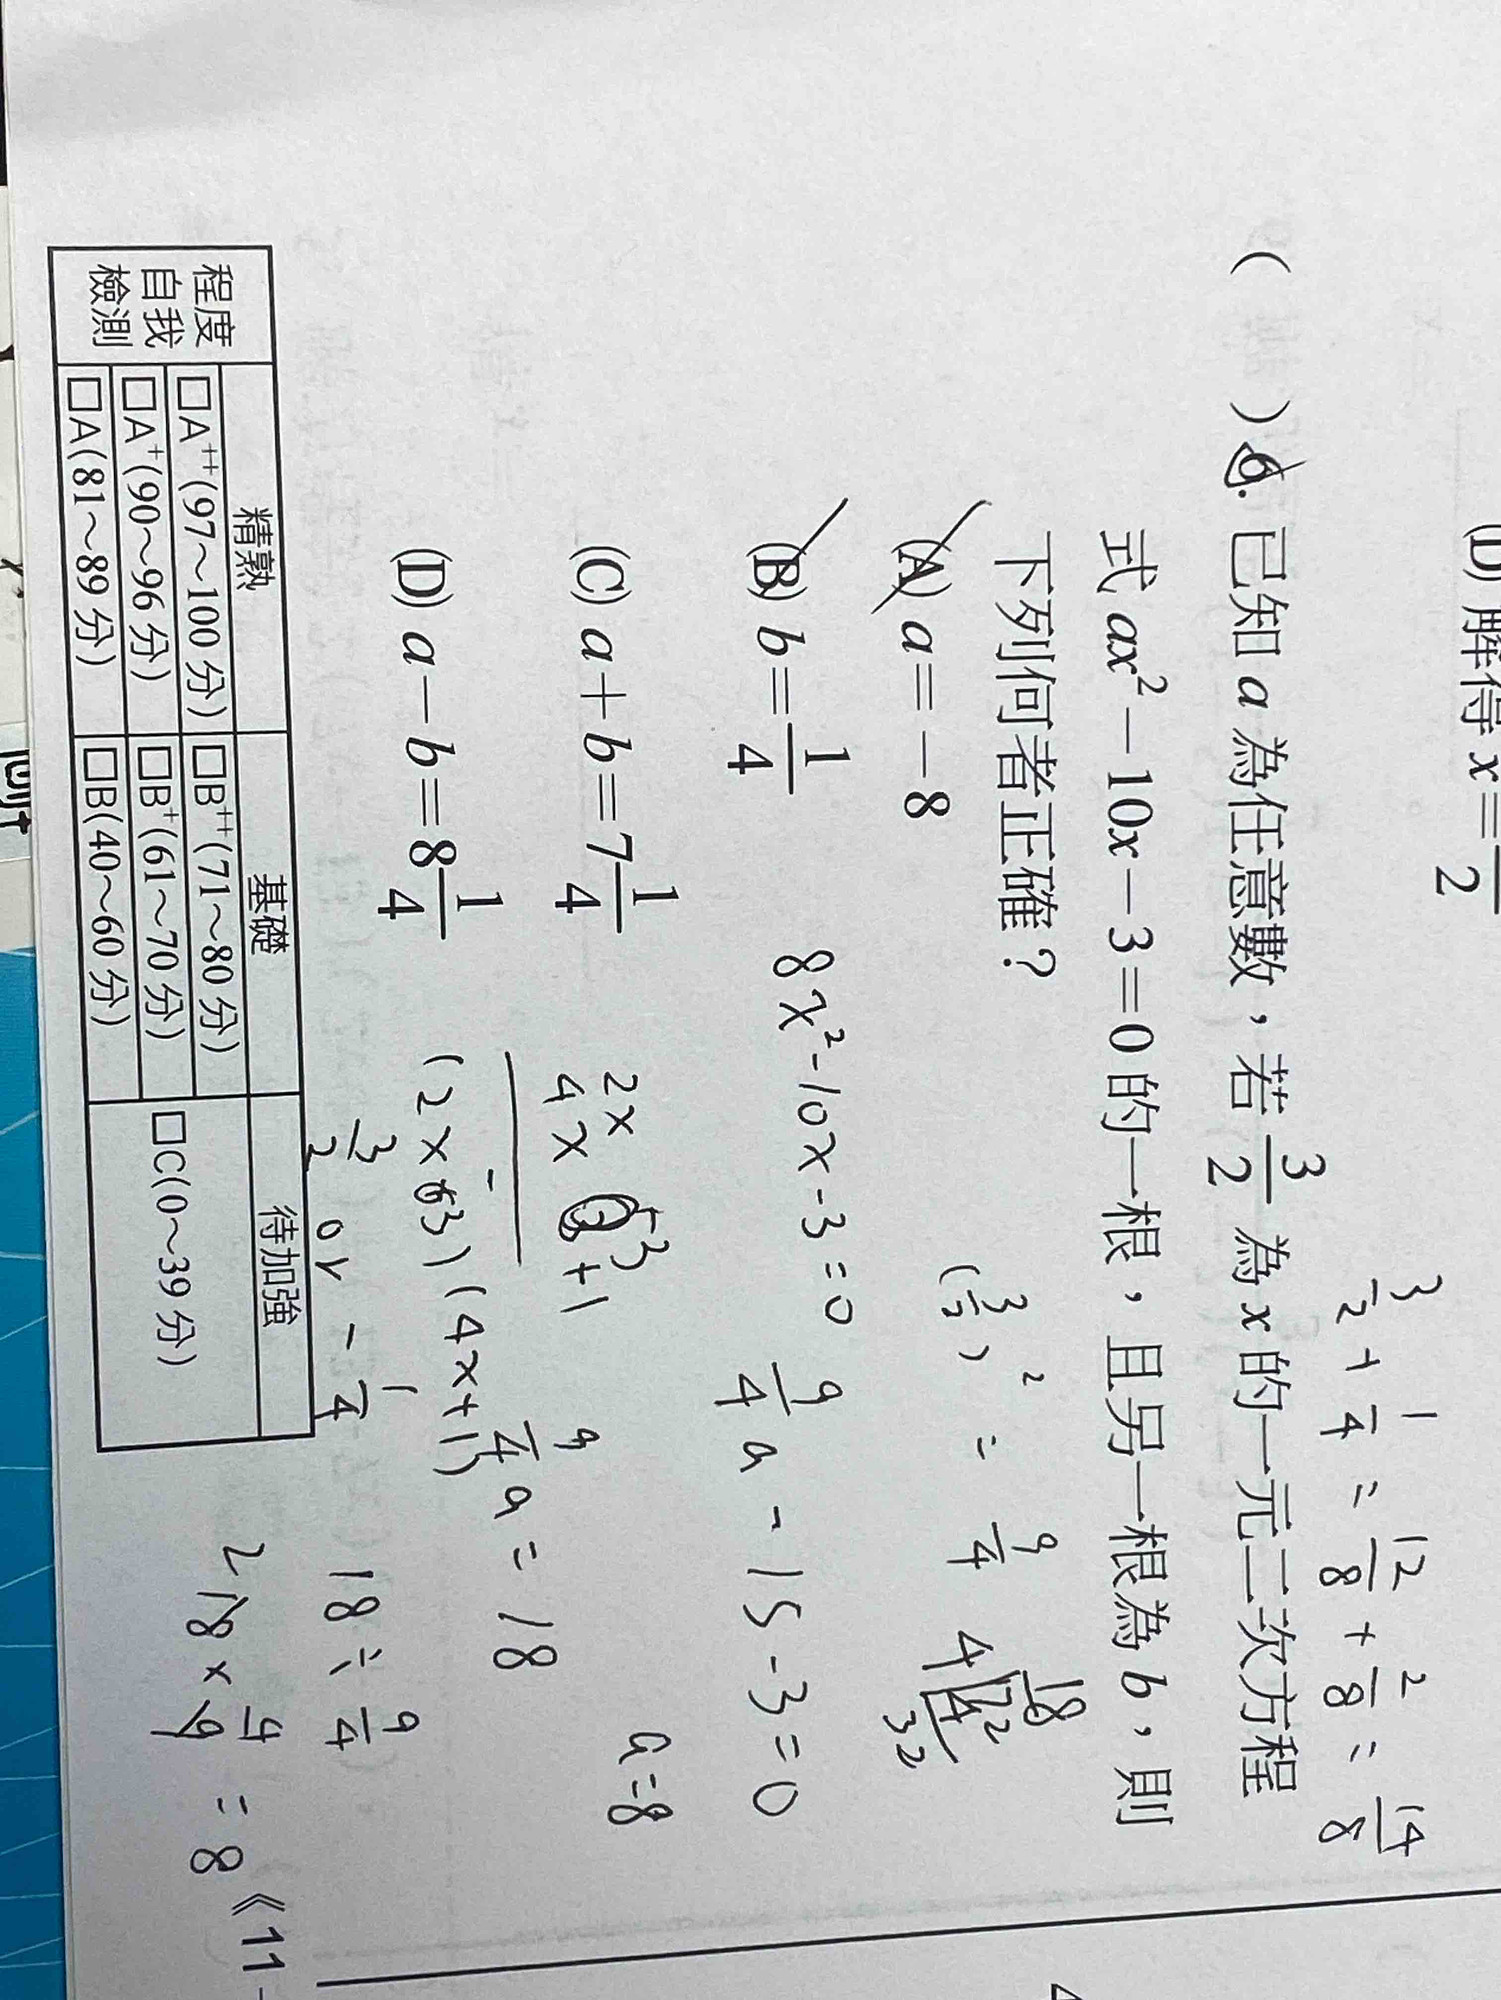 (D) 解得 x=—/2
( ) 6. 已知 a 為任意數，若 3/2 為 x 的一元二次方程
式 ax²－10x－3＝0 的一根，且另一根為 b，則
下列何者正確？
(A) a＝－8
(B) b＝1/4
(C) a＋b＝7 1/4
(D) a－b＝8 1/4
3/2 + 1/4 = 12/8 + 2/8 = 14/8
(3/2)² = 9/4
18
4
32
8x²-10x-3=0
9/4 a - 15 - 3 = 0
2x -3
4x +1
a=8
(2x-3)(4x+1)
9/4 a = 18
3/2 or -1/4
18÷9/4
2 18×4/9 = 8
程度
自我
檢測
精熟
基礎
待加強
□A⁺⁺(97～100 分)
□B⁺⁺(71～80 分)
□C(0～39 分)
□A⁺(90～96 分)
□B⁺(61～70 分)
□A(81～89 分)
□B(40～60 分)
《11-